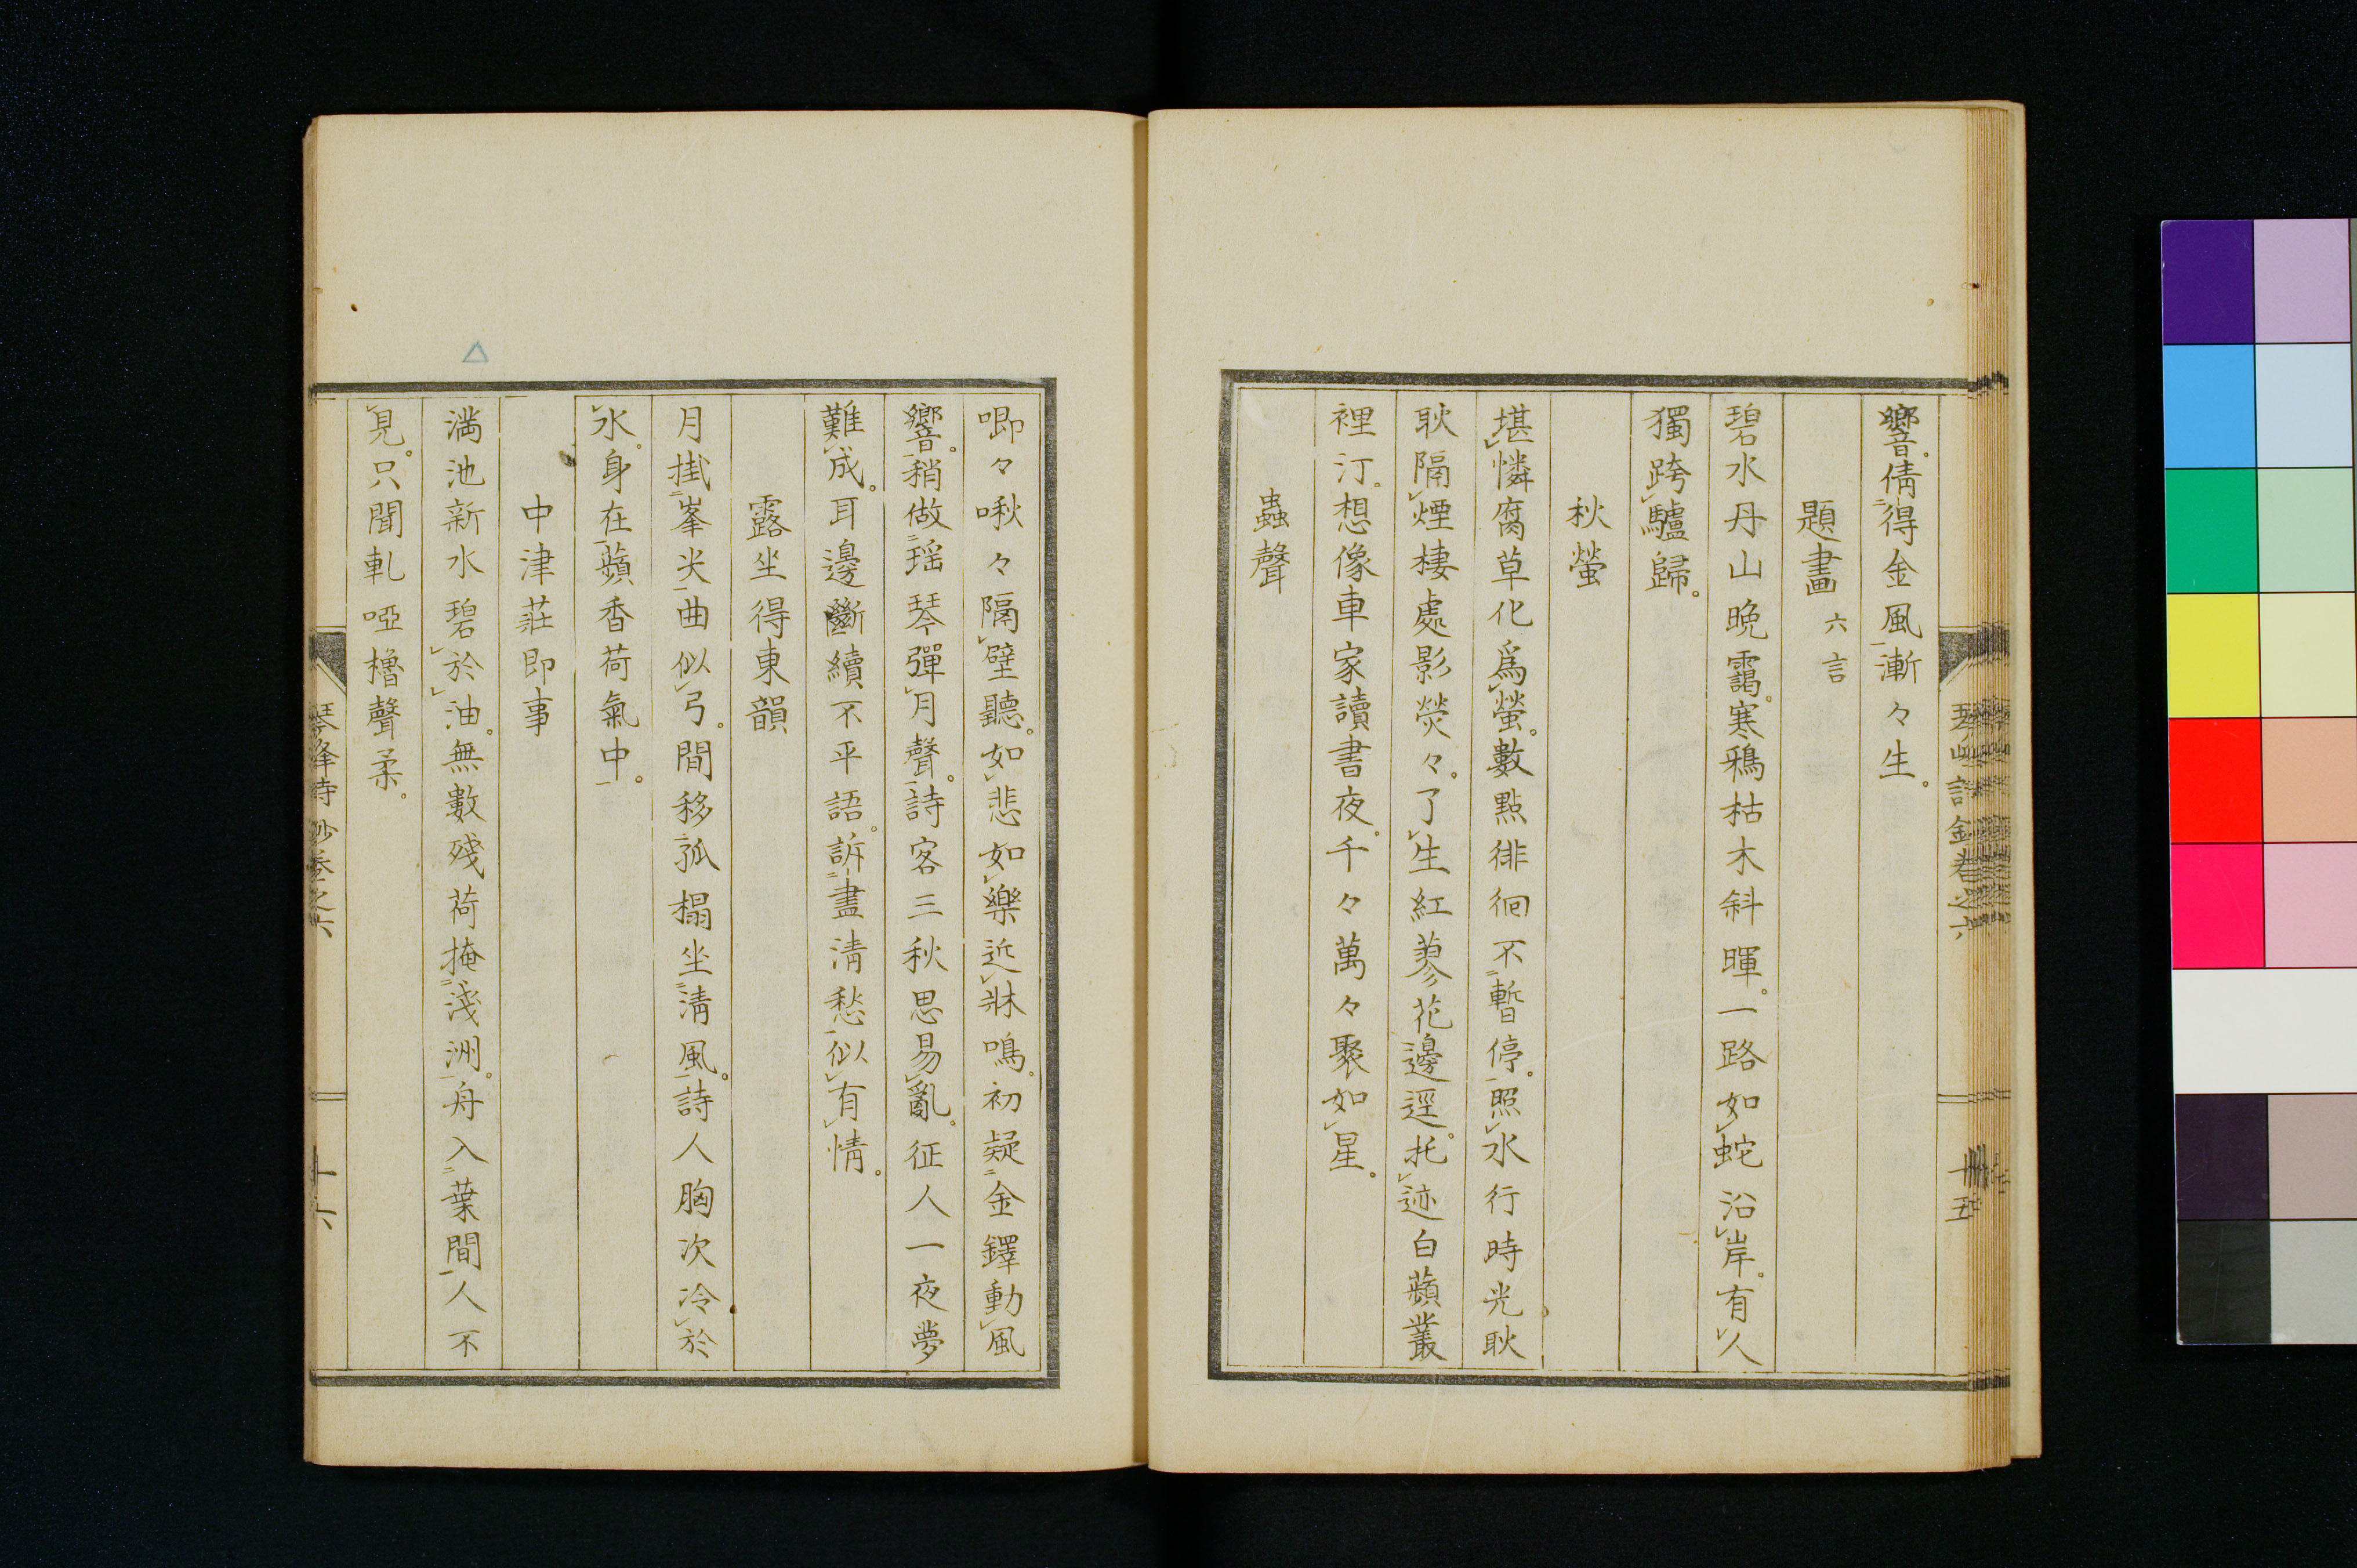 響。倩得金風漸々生。
題畫 六言
碧水丹山晚靄。寒鴉枯木斜暉。一路如蛇沿岸。有人
獨跨驢歸。
秋螢
堪憐腐草化爲螢。數點徘徊不暫停。照水行時光耿
耿隔煙棲處影熒々。了生紅蓼花邊逕。托迹白蘋叢
裡汀。想像車家讀書夜。千々萬々聚如星。
蟲聲
十五
唧々啾々隔壁聽。如悲如樂近牀鳴。初疑金鐸動風
響。稍做瑶琴彈月聲。詩客三秋思易亂。征人一夜夢
難成。耳邊斷續不平語。訴盡清愁似有情。
露坐得東韻
月掛峯尖曲似弓。間移孤榻坐清風。詩人胸次冷於
水。身在蘋香荷氣中。
中津莊即事
満池新水碧於油。無數殘荷掩淺洲。舟入葉間人不
見。只聞軋啞櫓聲柔。
琴峰詩抄卷之六
十六